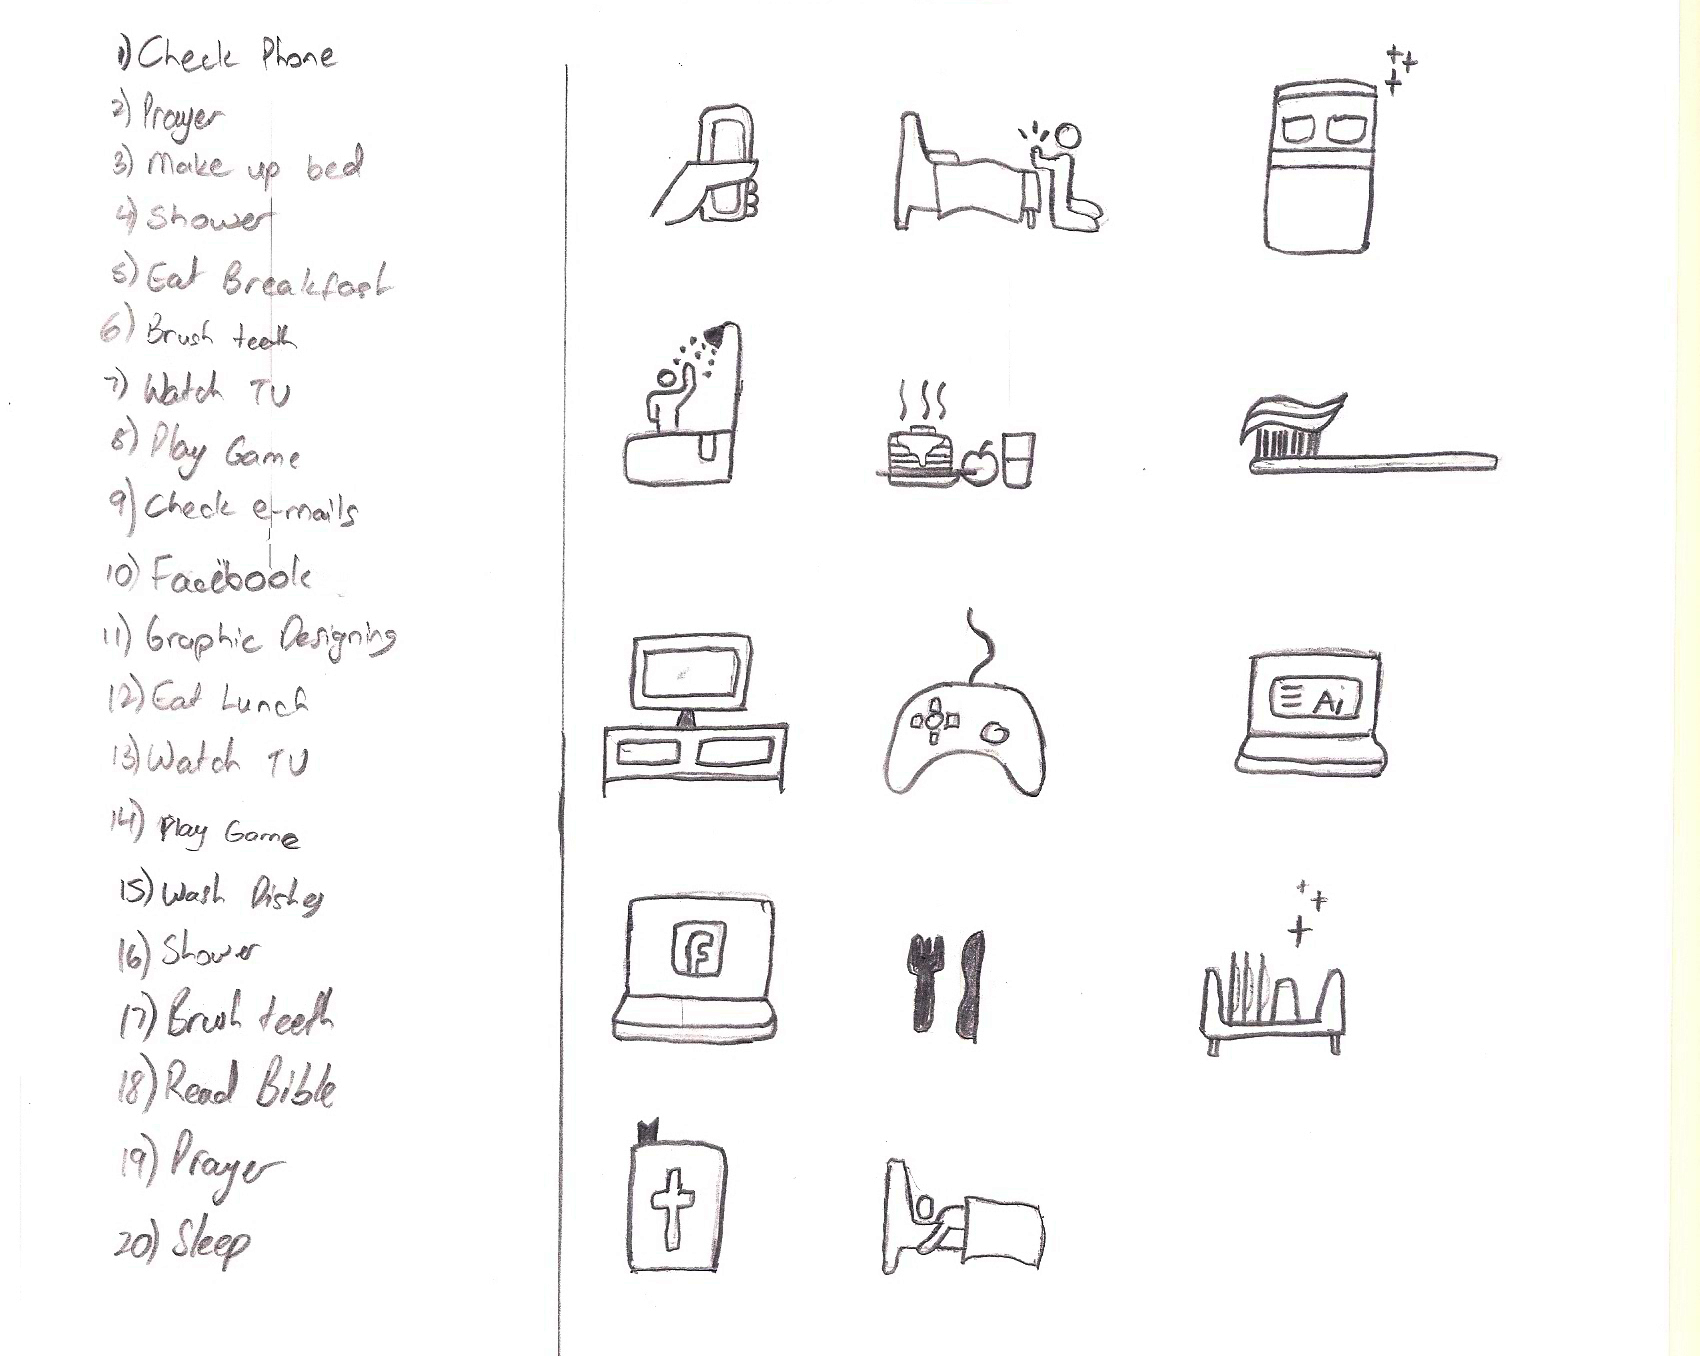 1) Check Phone
2) Prayer
3) Make up bed
4) Shower
5) Eat Breakfast
6) Brush teeth
7) Watch TV
8) Play Game
9) Check e-mails
10) Facebook
11) Graphic Designing
12) Eat Lunch
13) Watch TV
14) Play Game
15) Wash Dishes
16) Shower
17) Brush teeth
18) Read Bible
19) Prayer
20) Sleep
Ai
f